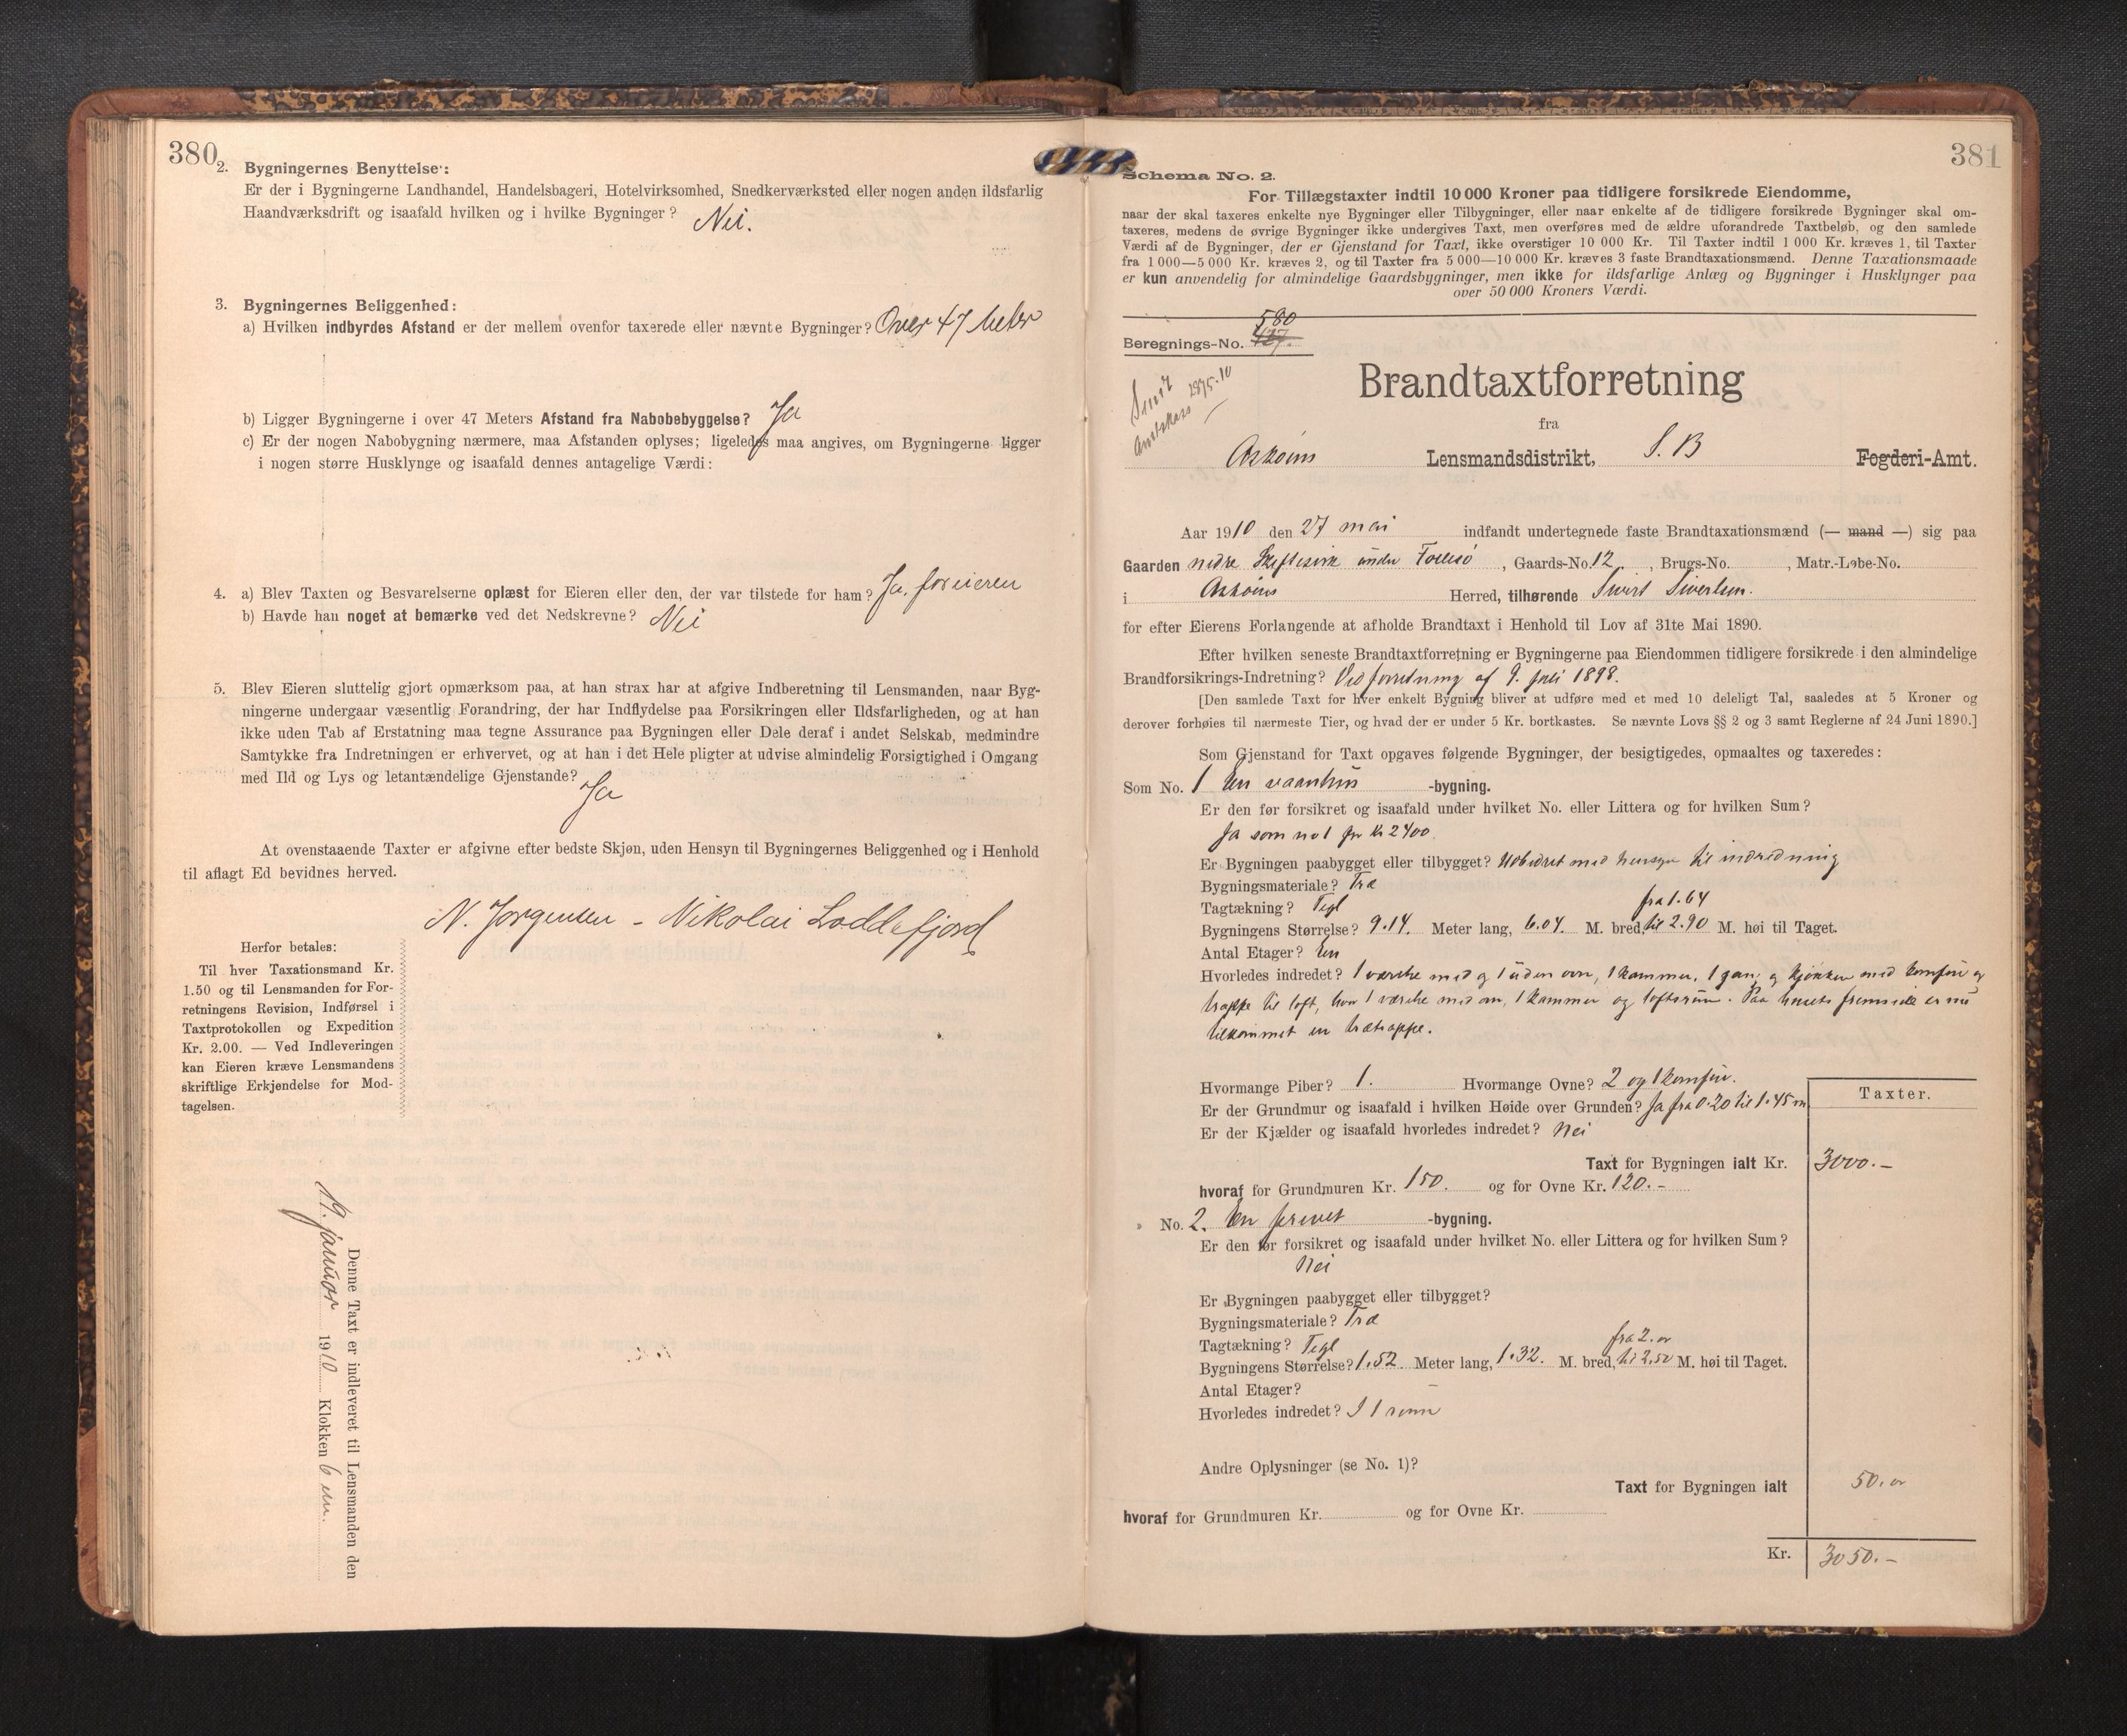 380
2. Bygningernes Benyttelse:
Er der i Bygningerne Landhandel, Handelsbageri, Hotelvirksomhed, Snedkerværksted eller nogen anden ildsfarlig
Haandværksdrift og isaafald hvilken og i hvilke Bygninger? Nei.
3. Bygningernes Beliggenhed:
a) Hvilken indbyrdes Afstand er der mellem ovenfor taxerede eller nævnte Bygninger? Over 47 Meter
b) Ligger Bygningerne i over 47 Meters Afstand fra Nabobebyggelse? Ja
c) Er der nogen Nabobygning nærmere, maa Afstanden oplyses; ligeledes maa angives, om Bygningerne ligger
i nogen større Husklynge og isaafald dennes antagelige Værdi:
4. a) Blev Taxten og Besvarelserne oplæst for Eieren eller den, der var tilstede for ham? Ja, for eieren
b) Havde han noget at bemærke ved det Nedskrevne? Nei
5. Blev Eieren sluttelig gjort opmærksom paa, at han strax har at afgive Indberetning til Lensmanden, naar Byg-
ningerne undergaar væsentlig Forandring, der har Indflydelse paa Forsikringen eller Ildsfarligheden, og at han
ikke uden Tab af Erstatning maa tegne Assurance paa Bygningen eller Dele deraf i andet Selskab, medmindre
Samtykke fra Indretningen er erhvervet, og at han i det Hele pligter at udvise almindelig Forsigtighed i Omgang
med Ild og Lys og letantændelige Gjenstande? Ja
At ovenstaaende Taxter er afgivne efter bedste Skjøn, uden Hensyn til Bygningernes Beliggenhed og i Henhold
til aflagt Ed bevidnes herved.
N. Jørgensen - Nikolai Loddefjord
Herfor betales:
Til hver Taxationsmand Kr.
1.50 og til Lensmanden for For-
retningens Revision, Indførsel i
Taxtprotokollen og Expedition
Kr. 2.00. — Ved Indleveringen
kan Eieren kræve Lensmandens
skriftlige Erkjendelse for Mod-
tagelsen.
Denne Taxt er indleveret til Lensmanden den
19. januar 1910 Klokken 6 em.
381
Schema No. 2.
For Tillægstaxter indtil 10 000 Kroner paa tidligere forsikrede Eiendomme,
naar der skal taxeres enkelte nye Bygninger eller Tilbygninger, eller naar enkelte af de tidligere forsikrede Bygninger skal om-
taxeres, medens de øvrige Bygninger ikke undergives Taxt, men overføres med de ældre uforandrede Taxtbeløb, og den samlede
Værdi af de Bygninger, der er Gjenstand for Taxt, ikke overstiger 10 000 Kr. Til Taxter indtil 1 000 Kr. kræves 1, til Taxter
fra 1 000—5 000 Kr. kræves 2, og til Taxter fra 5 000—10 000 Kr. kræves 3 faste Brandtaxationsmænd. Denne Taxationsmaade
er kun anvendelig for almindelige Gaardsbygninger, men ikke for ildsfarlige Anlæg og Bygninger i Husklynger paa
over 50 000 Kroners Værdi.
580
Beregnings-No.
Brandtaxtforretning
fra
Askøens Lensmandsdistrikt, S. B Fogderi-Amt.
Aar 1910 den 27 mai indfandt undertegnede faste Brandtaxationsmænd (— mand —) sig paa
Gaarden nedre under , Gaards-No. 12 , Brugs-No. , Matr.-Løbe-No.
i Askøens Herred, tilhørende Sivert Sivertsen.
for efter Eierens Forlangende at afholde Brandtaxt i Henhold til Lov af 31te Mai 1890.
Efter hvilken seneste Brandtaxtforretning er Bygningerne paa Eiendommen tidligere forsikrede i den almindelige
Brandforsikrings-Indretning? Ved forretning af 9. juli 1898.
[Den samlede Taxt for hver enkelt Bygning bliver at udføre med et med 10 deleligt Tal, saaledes at 5 Kroner og
derover forhøies til nærmeste Tier, og hvad der er under 5 Kr. bortkastes. Se nævnte Lovs §§ 2 og 3 samt Reglerne af 24 Juni 1890.]
Som Gjenstand for Taxt opgaves følgende Bygninger, der besigtigedes, opmaaltes og taxeredes:
Som No. 1 En vaanhus -bygning.
Er den før forsikret og isaafald under hvilket No. eller Littera og for hvilken Sum?
Ja som no 1 for kr 2400
Er Bygningen paabygget eller tilbygget? Udbedret med hensyn til indredning
Bygningsmateriale? Træ
Tagtækning? Tegl
fra 1.64
Bygningens Størrelse? 9.14. Meter lang, 6.04. M. bred, til 2.90 M. høi til Taget.
Antal Etager? En
Hvorledes indredet? 1 værelse med og 1 uden ovn, 1 kammer, 1 gang og kjøkken med komfur og
trappe til loft, hvor 1 værelse med ovn, 1 kammer og loftsrum. Paa husets fremside er nu
tilkommet en trætrappe.
Hvormange Piber? 1. Hvormange Ovne? 2 og 1 komfur.
Er der Grundmur og isaafald i hvilken Høide over Grunden? Ja fra 0.20 til 1.45 m
Er der Kjælder og isaafald hvorledes indredet? Nei
Taxter.
Taxt for Bygningen ialt Kr. 3000.-
hvoraf for Grundmuren Kr. 150. og for Ovne Kr. 120.-
" No. 2. En privet -bygning.
Er den før forsikret og isaafald under hvilket No. eller Littera og for hvilken Sum?
Nei
Er Bygningen paabygget eller tilbygget?
Bygningsmateriale? Træ
Tagtækning? Tegl
fra 2.00
Bygningens Størrelse? 1.52 Meter lang, 1.32. M. bred, til 2.50 M. høi til Taget.
Antal Etager? –
Hvorledes indredet? I 1 rum
Andre Oplysninger (se No. 1)?
Taxt for Bygningen ialt 50.00
hvoraf for Grundmuren Kr. og for Ovne Kr.
Kr. 3050.-